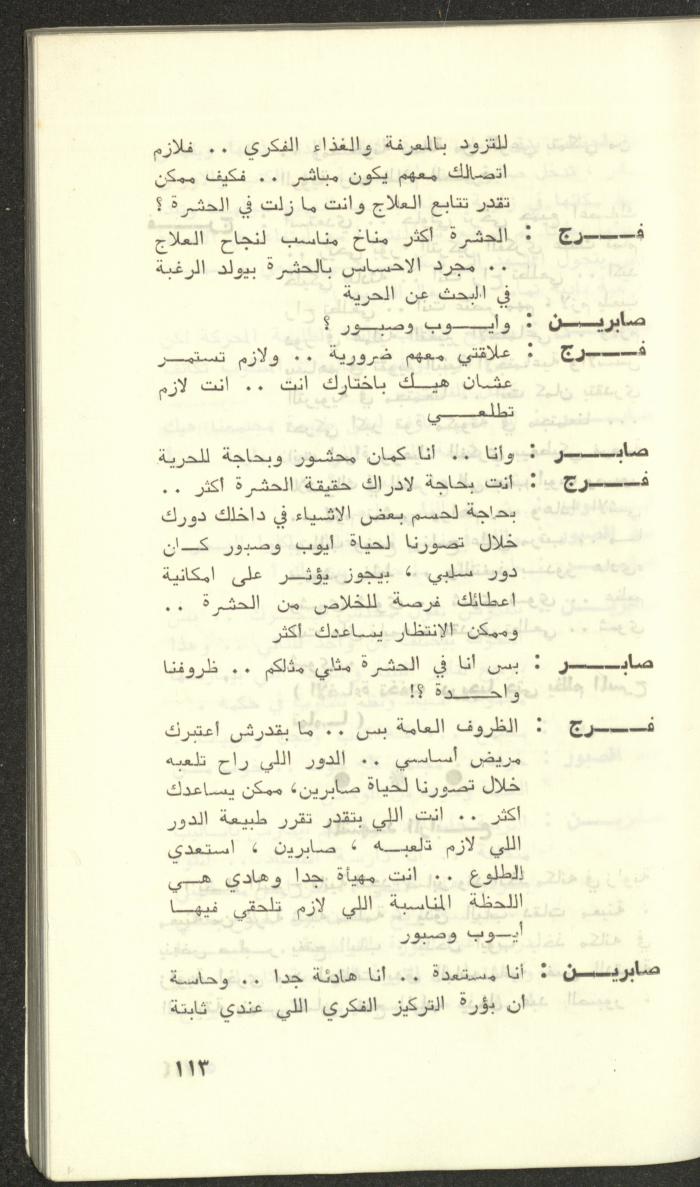 للتزود بالمعرفة والغذاء الفكري .. فلازم
اتصالك معهم يكون مباشر .. فكيف ممكن
تقدر تتابع العلاج وانت ما زلت في الحشرة ؟
فـــــرج : الحشرة اكثر مناخ مناسب لنجاح العلاج
.. مجرد الاحساس بالحشرة بيولد الرغبة
في البحث عن الحرية
صابريــــن : وايـــوب وصبــور ؟
فـــــرج : علاقتي معهم ضرورية .. ولازم تستمــر
عشان هيــك باختارك انت .. انت لازم
تطلعــــي
صابــــــر : وانا .. انا كمان محشور وبحاجة للحرية
فـــــرج : انت بحاجة لادراك حقيقة الحشرة اكثر ..
بحاجة لحسم بعض الاشياء في داخلك دورك
خلال تصورنا لحياة أيوب وصبور كــان
دور سلبي ، بيجوز يؤثــر على امكانية
اعطائك فرصة للخلاص من الحشرة ..
وممكن الانتظار يساعدك اكثر
صابــــــر : بس انا في الحشرة مثلي مثلكم .. ظروفنا
واحــــدة ؟!
فـــــرج : الظروف العامة بس .. ما بقدرش أعتبرك
مريض أساسي .. الدور اللي راح تلعبه
خلال تصورنا لحياة صابرين، ممكن يساعدك
أكثر .. انت اللي بتقدر تقرر طبيعة الدور
اللي لازم تلعبــه ، صابرين ، استعدي
للطلوع .. انت مهيأة جدا وهادي هــي
اللحظة المناسبة اللي لازم تلحقي فيهــا
أيــوب وصبور
صابريــــن : أنا مستعدة .. أنا هادئة جدا .. وحاسة
ان بؤرة التركيز الفكري اللي عندي ثابتة
١١٣